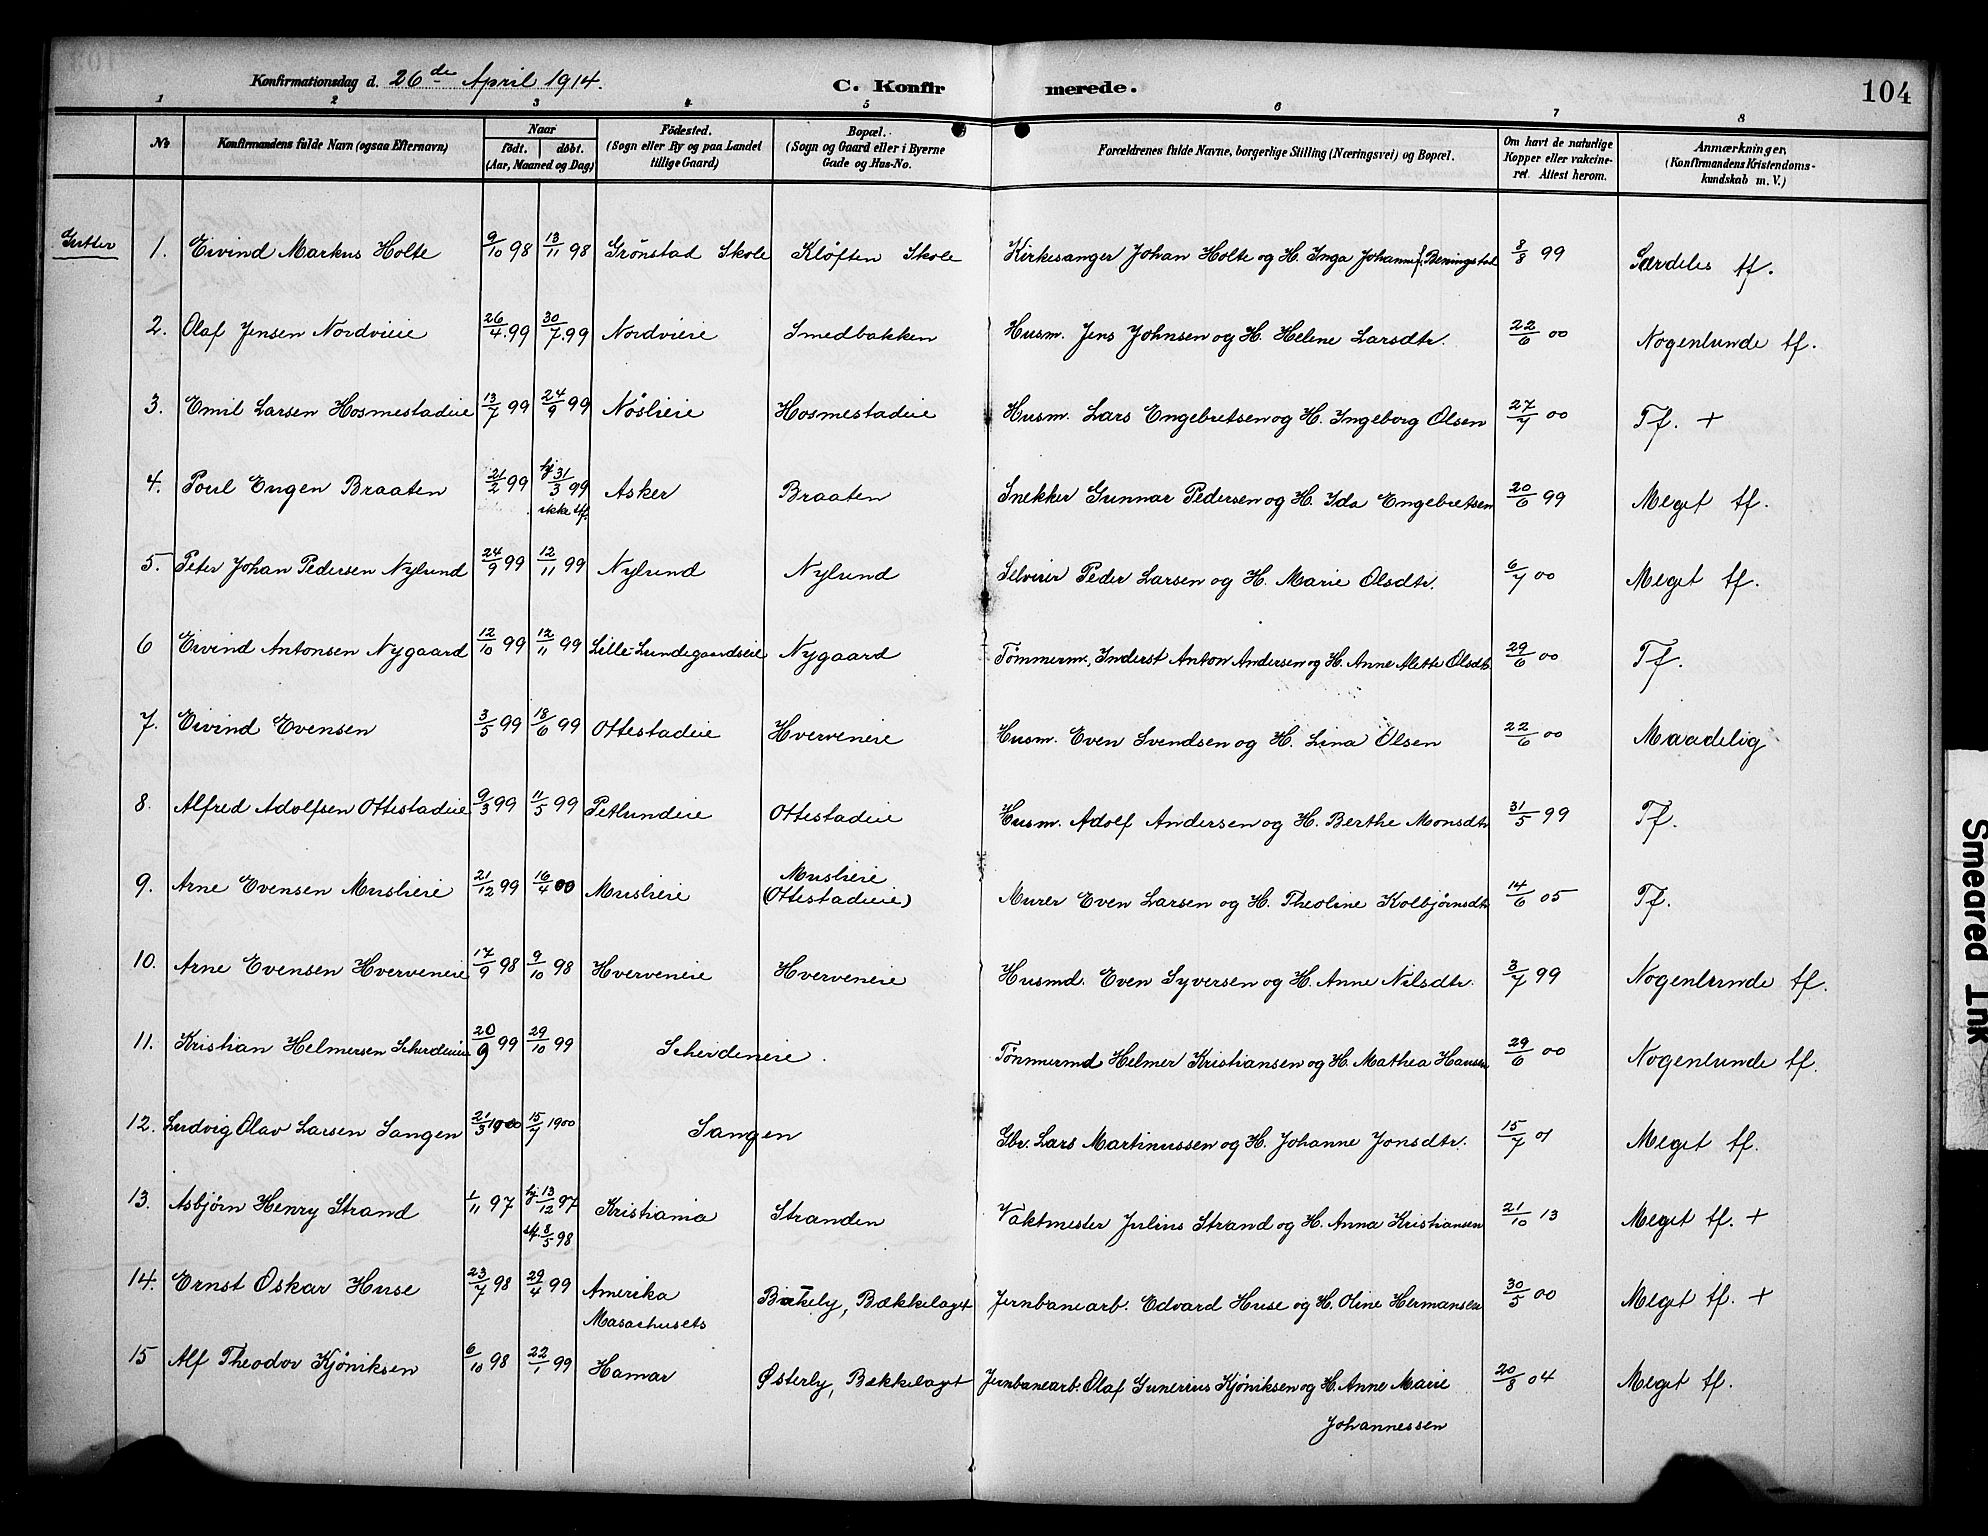 Konfirmationsdag d. 26de April 1914.
C. Konfir merede.
104
1 2 3 4 5 6 7 8
No Konfirmandens fulde Navn (ogsaa Efternavn) Naar födt. döbt. (Aar, Maaned og Dag) Födested. (Sogn eller By og paa Landet tillige Gaard) Bopæl. (Sogn og Gaard eller i Byerne Gade og Hus-No. Forældrenes fulde Navne, borgerlige Stilling (Næringsvei) og Bopæl. Om havt de naturlige Kopper eller vakcineret. Attest herom. Anmærkninger. (Konfirmandens Kristendomskundskab m. V.)
Gutter
1. Eivind Markus Holte 9/10 98 13/11 98 Grönstad Skole Klöften Skole Kirkesanger Johan Holte og H. Inga Johanne f. 8/8 99 Særdeles tf.
2. Olaf Jensen Nordvieie 26/4 99 30/7 99 Nordvieie Smedbakken Husm. Jens Johnsen og H. Helene Larsdtr. 22/6 00 Nogenlunde tf.
3. Emil Larsen Hosmestadeie 13/7 99 24/9 99 Nöslieie Hosmestadeie Husm. Lars Engebretsen og H. Ingeborg Olsen 27/7 00 Tf. +
4. Poul Eugen Braaten 21/2 99 hj 31/3 99 Asker Braaten Snekker Gunnar Pedersen og H. Ida Engebretsen 20/6 99 Meget tf.
ikke stf.
5. Peter Johan Pedersen Nylund 24/9 99 12/11 99 Nylund Nylund Selveier Peder Larsen og H. Marie Olsdtr. 6/7 00 Meget tf.
6 Eivind Antonsen Nygaard 12/10 99 12/11 99 Lille-Lundegaardseie Nygaard Tömmerm., Inderst Anton Andersen og H. Anne Mette Olsdtr. 29/6 00 Tf.
7. Eivind Evensen 3/5 99 18/6 99 Ottestadeie Hverveneie Husm. Even Svendsen og H. Lina Olsen 22/6 00 Maadelig
8. Alfred Adolfsen Ottestadeie 9/3 99 11/5 99 Petlundeie Ottestadeie Husm. Adolf Andersen og H. Berthe Monsdtr 31/5 99 Tf.
9. Arne Evensen Muslieie 21/12 99 16/4 00 Muslieie Muslieie (Ottestadeie) Murer Even Larsen og H. Theoline Kolbjörnsdtr 14/6 05 Tf.
10. Arne Evensen Hverveneie 17/9 98 9/10 98 Hverveneie Hverveneie Husmd. Even Syversen og H. Anne Nilsdtr. 3/7 99 Nogenlunde tf.
11. Kristian Helmersen Scherdeneie 20/9 99 29/10 99 Scherdeneie. Tömmermd Helmer Kristiansen og H. Mathea Hansen 29/6 00 Nogenlunde tf.
12. Ludvig Olav Larsen Sangen 21/3 1900 15/7 1900 Sangen Gbr. Lars Martinussen og H. Johanne Jonsdtr. 15/7 01 Meget tf.
13. Asbjörn Henry Strand 1/11 97 hj 13/12 97 Kristiania Stranden Vaktmester Julius Strand og H. Anna Kristiansen 21/10 13 Meget tf. +
stf. 8/5 98
14. Ernst Oskar Huse 23/7 98 29/4 99 Amerika Bækkelaget Jernbanearb. Edvard Huse og H. Oline Hermansen 30/5 00 Meget tf. +
Masachusets
15 Alf Theodor Kjöniksen 6/10 98 22/1 99 Hamar Østerly, Bækkelaget Jernbanearb. Olaf Gunerius Kjöniksen og H. Anne Marie 20/8 04 Meget tf.
Johannessen
Smeared Ink